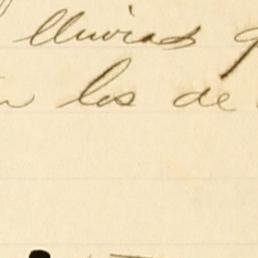 lluvias
los de